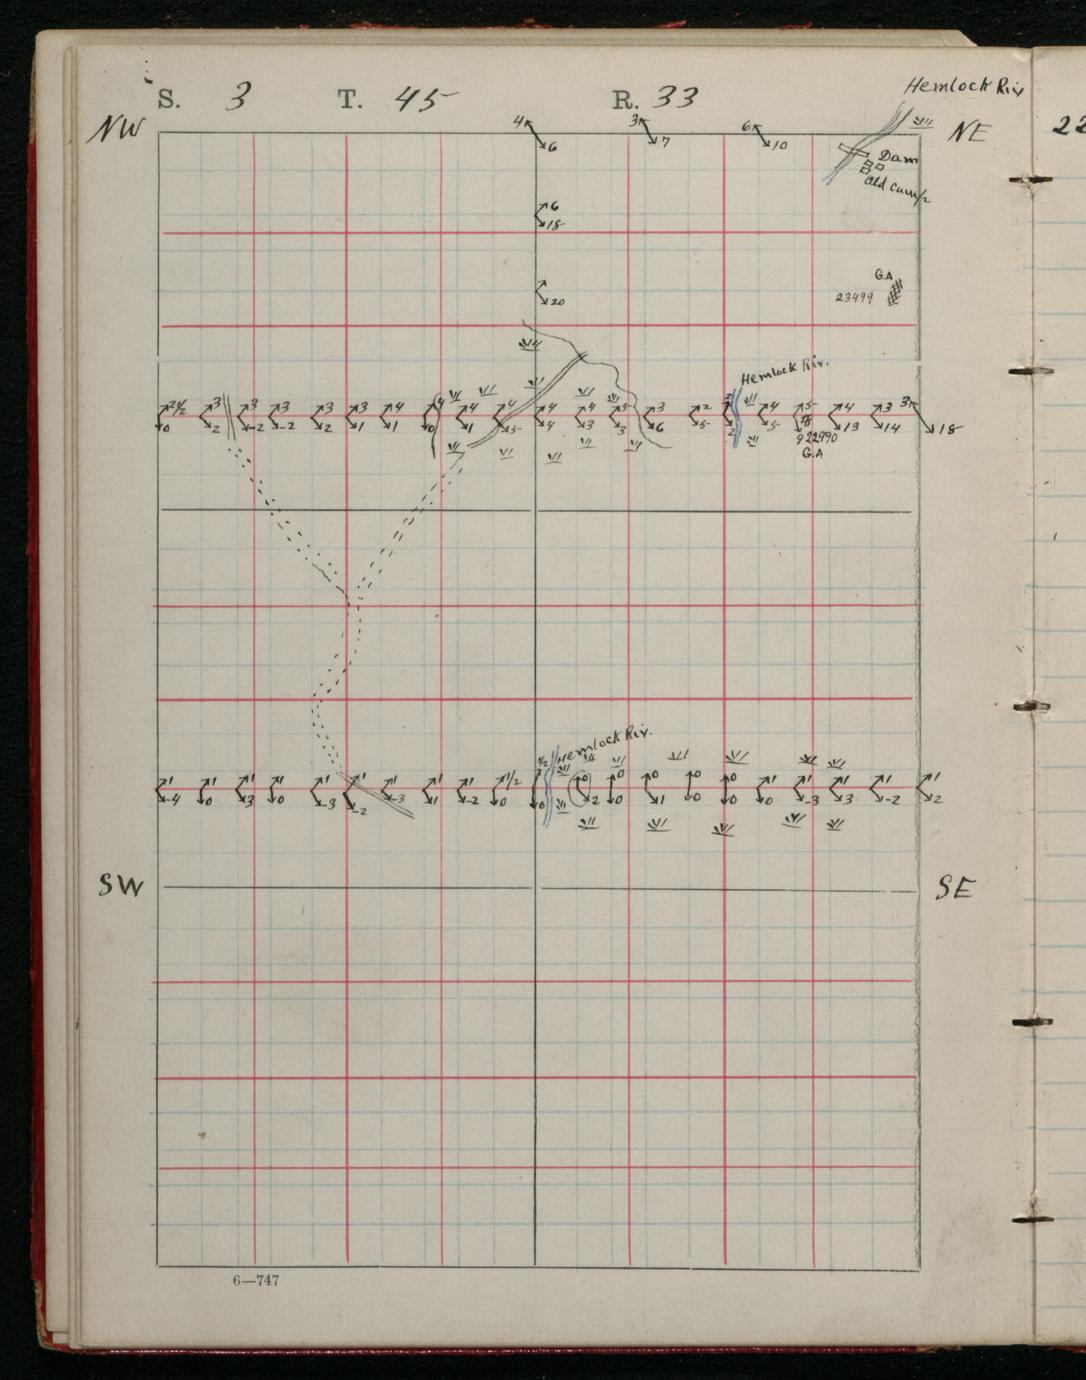 Hemlock Riv
S. 3 T. 45 R. 33
NW 4 6 3 7 6 10 NE 22
Dam
Old Camp
6
18
20
G.A
23499
Hemlock Riv.
2½ 3 3 3 3 3 4 4 4 4 4 4 5 3 2 4 5 4 3 3
0 2 -2 -2 2 1 1 0 1 5 4 3 3 6 5 2 5 9 13 14 18
22990
G.A
Hemlock Riv.
1 1 1 1 1 1 1 1 1 1/2 1/2 0 0 0 0 0 1 1 1 1 1
-4 0 3 0 -3 -2 -3 1 -2 0 0 2 0 1 0 0 0 -3 3 -2 2
SW SE
6—747